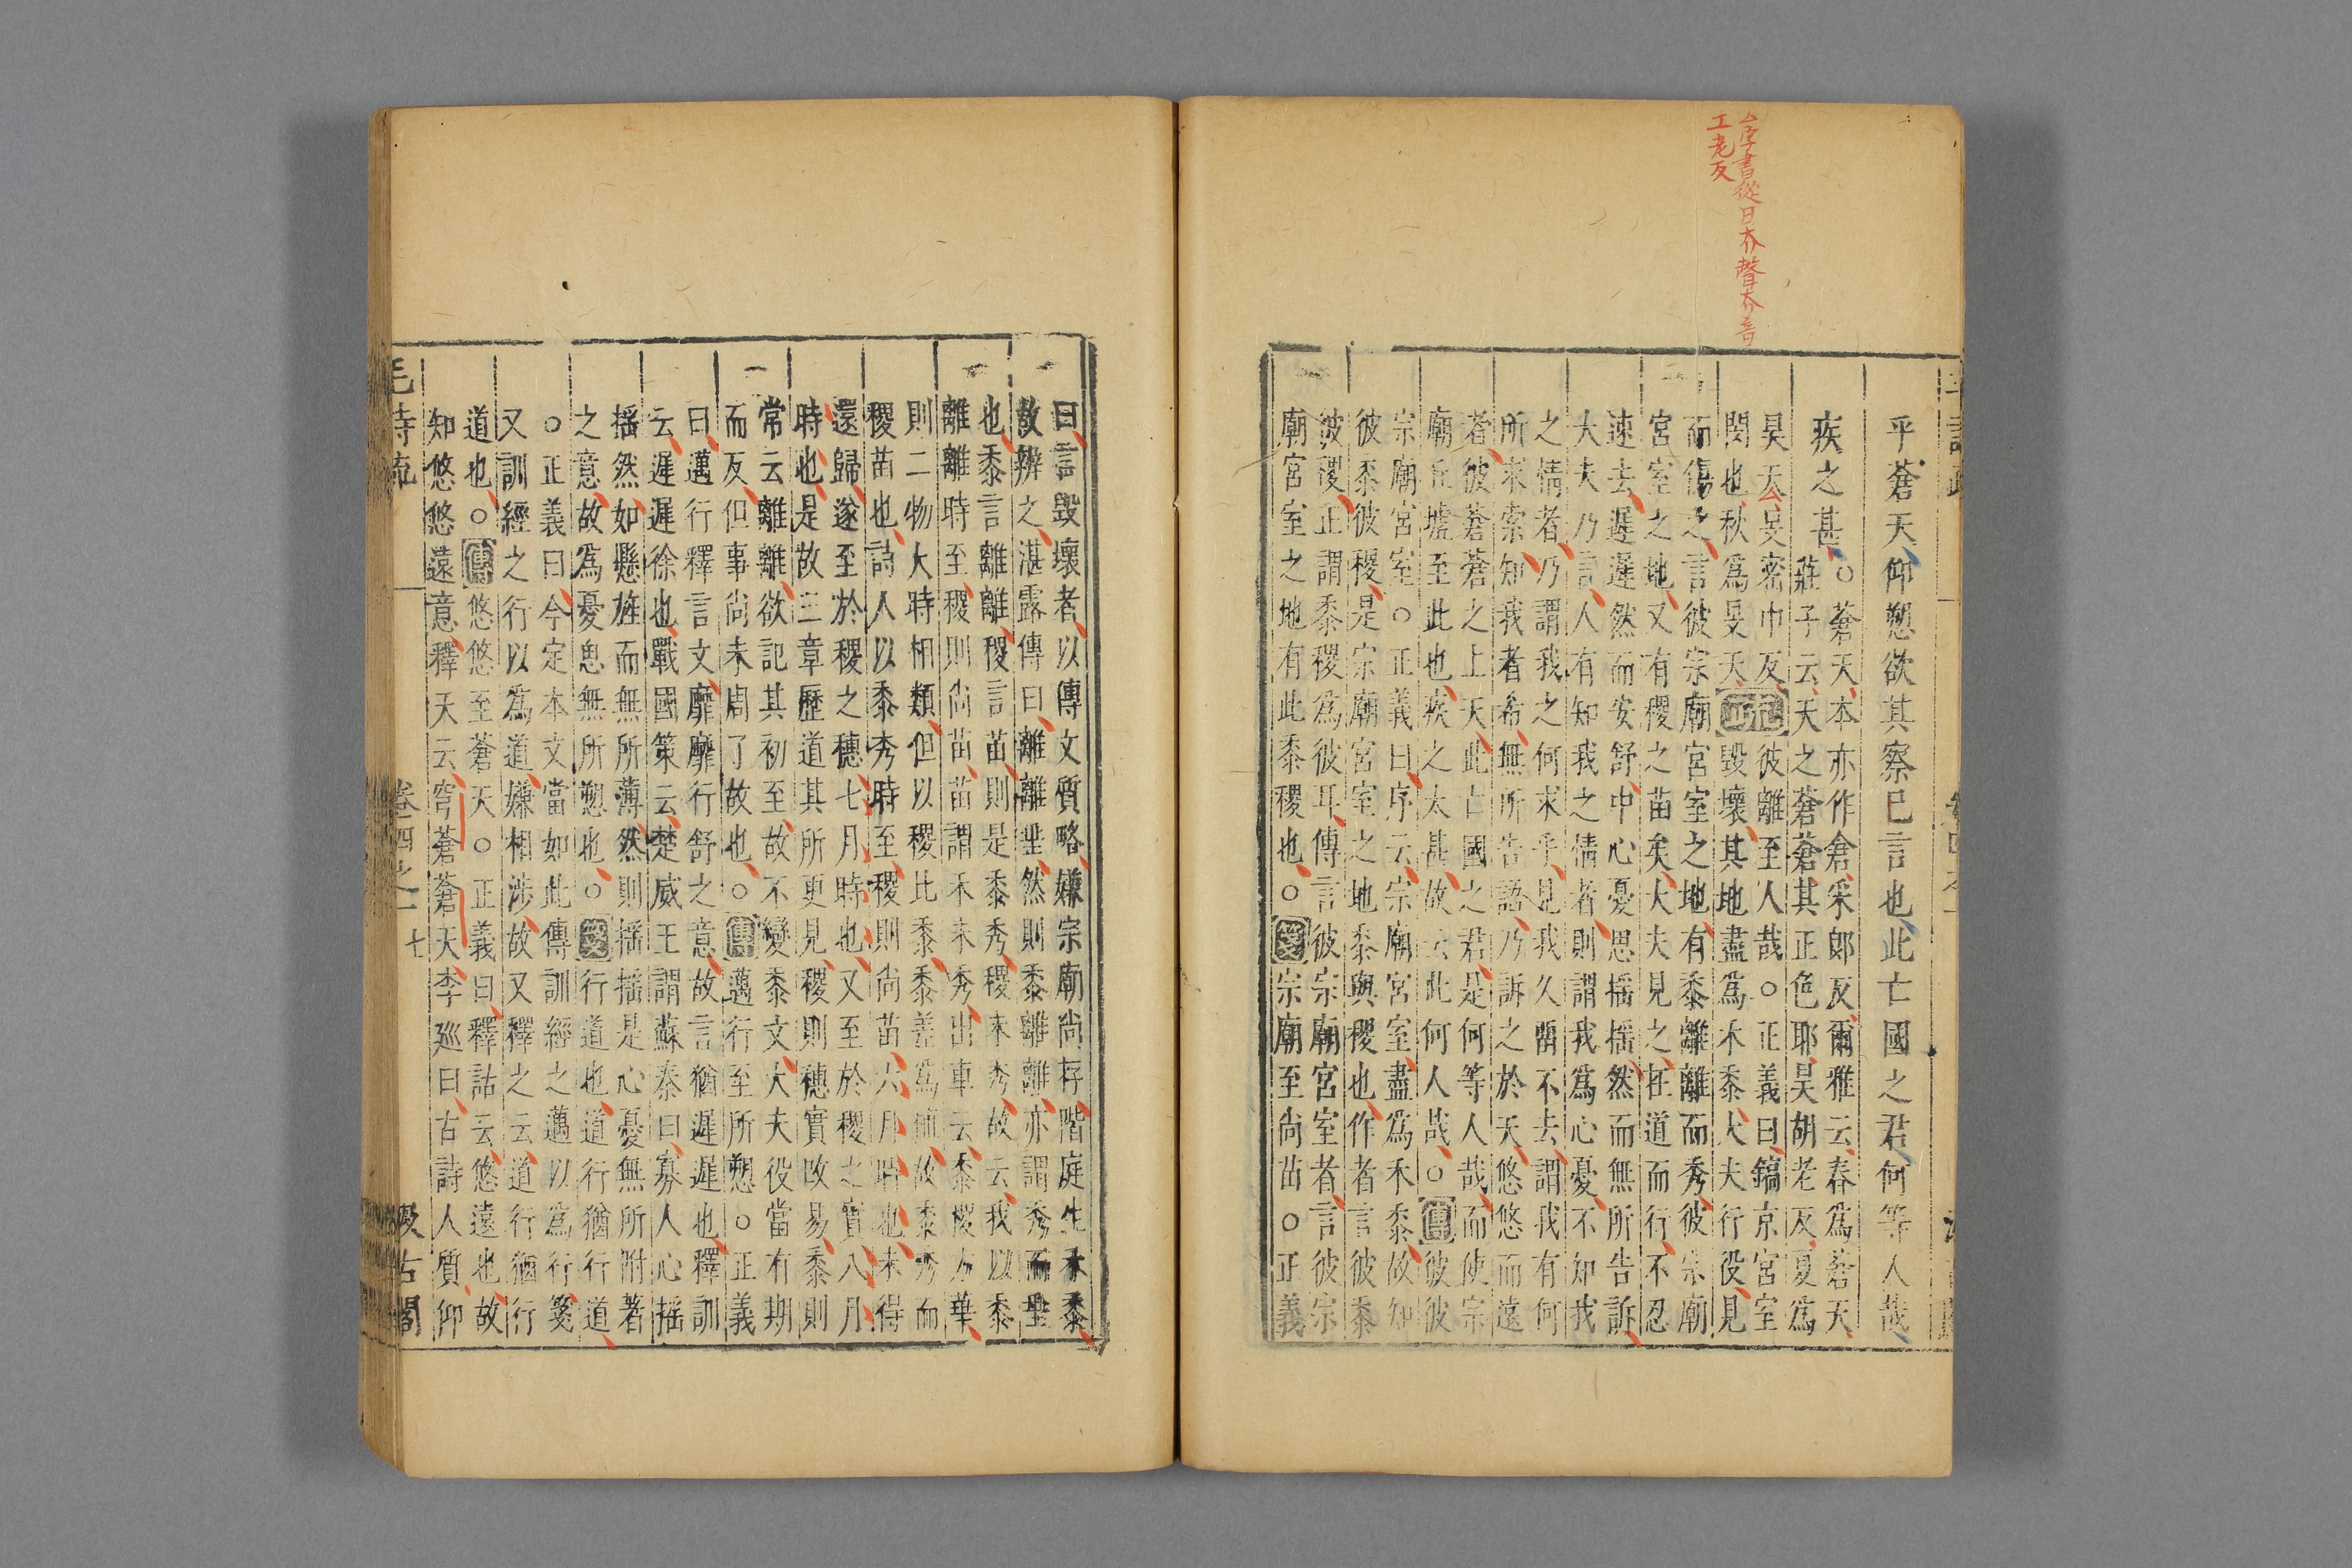 厺唐書從日夲聲夲音
工老反
平蒼天仰愬欲其察已言也此亡國之君何等人哉
疾之甚○蒼天本亦作倉采郎反爾雅云春爲蒼天
莊子云天之蒼蒼其正色耶昊胡老反夏爲
昊天旻密巾反彼離至人哉○正義曰鎬京宮室
閔也秋爲旻天疏毀壞其地盡爲禾黍大夫行役見
而傷之言彼宗廟宮室之地有黍離離而秀彼宗廟
宮室之地又有稷之苗矣大夫見之在道而行不忍
速去遲遲然而安舒中心憂思搖搖然而無所告訴
大夫乃言人有知我之情者則謂我爲心憂不知我
之情者乃謂我之何求乎見我久留不去謂我有何
所求索知我者希無所告語乃訴之於天悠悠而遠
者彼蒼蒼之上天此亡國之君是何等人哉而使宗
廟丘墟至此也疾之太甚故云此何人哉○傳彼彼
宗廟宮室○正義曰序云宗廟宮室盡爲禾黍故知
彼黍彼稷是宗廟宮室之地黍與稷也作者言彼黍
彼稷正謂黍稷爲彼耳傳言彼宗廟宮室者言彼宗
廟宮室之地有此黍稷也○箋宗廟至尚苗○正義
曰言毀壞者以傳文質略嫌宗廟尚存階庭生禾黍
故辨之湛露傳曰離離垂然則黍離離亦謂秀而垂
也黍言離離稷言苗則是黍秀稷未秀故云我以黍
離離時至稷則尚苗苗謂禾未秀出車云黍稷方華
則二物大時相類但以稷比黍黍差爲稙故黍秀而
稷苗也詩人以黍秀時至稷則尚苗六月時也未得
還歸遂至於稷之穗七月時也又至於稷之實八月
時也是故三章歷道其所更見稷則穗實改易黍則
常云離離欲記其初至故不變黍文大夫役當有期
而反但事尚未周了故也○傳邁行至所愬○正義
曰邁行釋言文靡靡行舒之意故言猶遲遲也釋訓
云遲遲徐也戰國策云楚威王謂蘇秦曰寡人心搖
搖然如懸旌而無所薄然則搖搖是心憂無所附著
之意故爲憂思無所愬也○箋行道也道行猶行道
○正義曰今定本文當如此傳訓經之邁以爲行箋
又訓經之行以爲道嫌相涉故又釋之云道行猶行
道也○傳悠悠至蒼天○正義曰釋詁云悠遠也故
知悠悠遠意釋天云穹蒼蒼天李巡曰古詩人質仰
毛詩疏
卷四之一
七
汲古閣